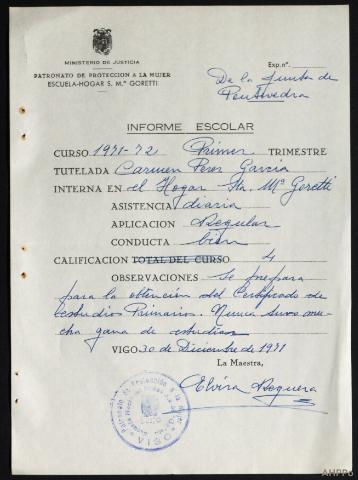 MINISTERIO DE JUSTICIA
PATRONATO DE PROTECCION A LA MUJER
ESCUELA-HOGAR S. M.ª GORETTI
Exp. n.º
De la Junta de
Pontevedra
INFORME ESCOLAR
CURSO 1971-72 Primer TRIMESTRE
TUTELADA Carmen Perez García
INTERNA EN el Hogar Sta. Mª Goretti
ASISTENCIA diaria
APLICACION Regular
CONDUCTA bien
CALIFICACION TOTAL DEL CURSO 4
OBSERVACIONES Se prepara
para la obtención del Certificado de
Estudios Primarios. Nunca tuvo mu-
cha gana de estudiar
VIGO 30 de Diciembre de 1971
La Maestra,
Elvira Reguera
Patronato de Protección a la Mujer
VIGO
AHPPo